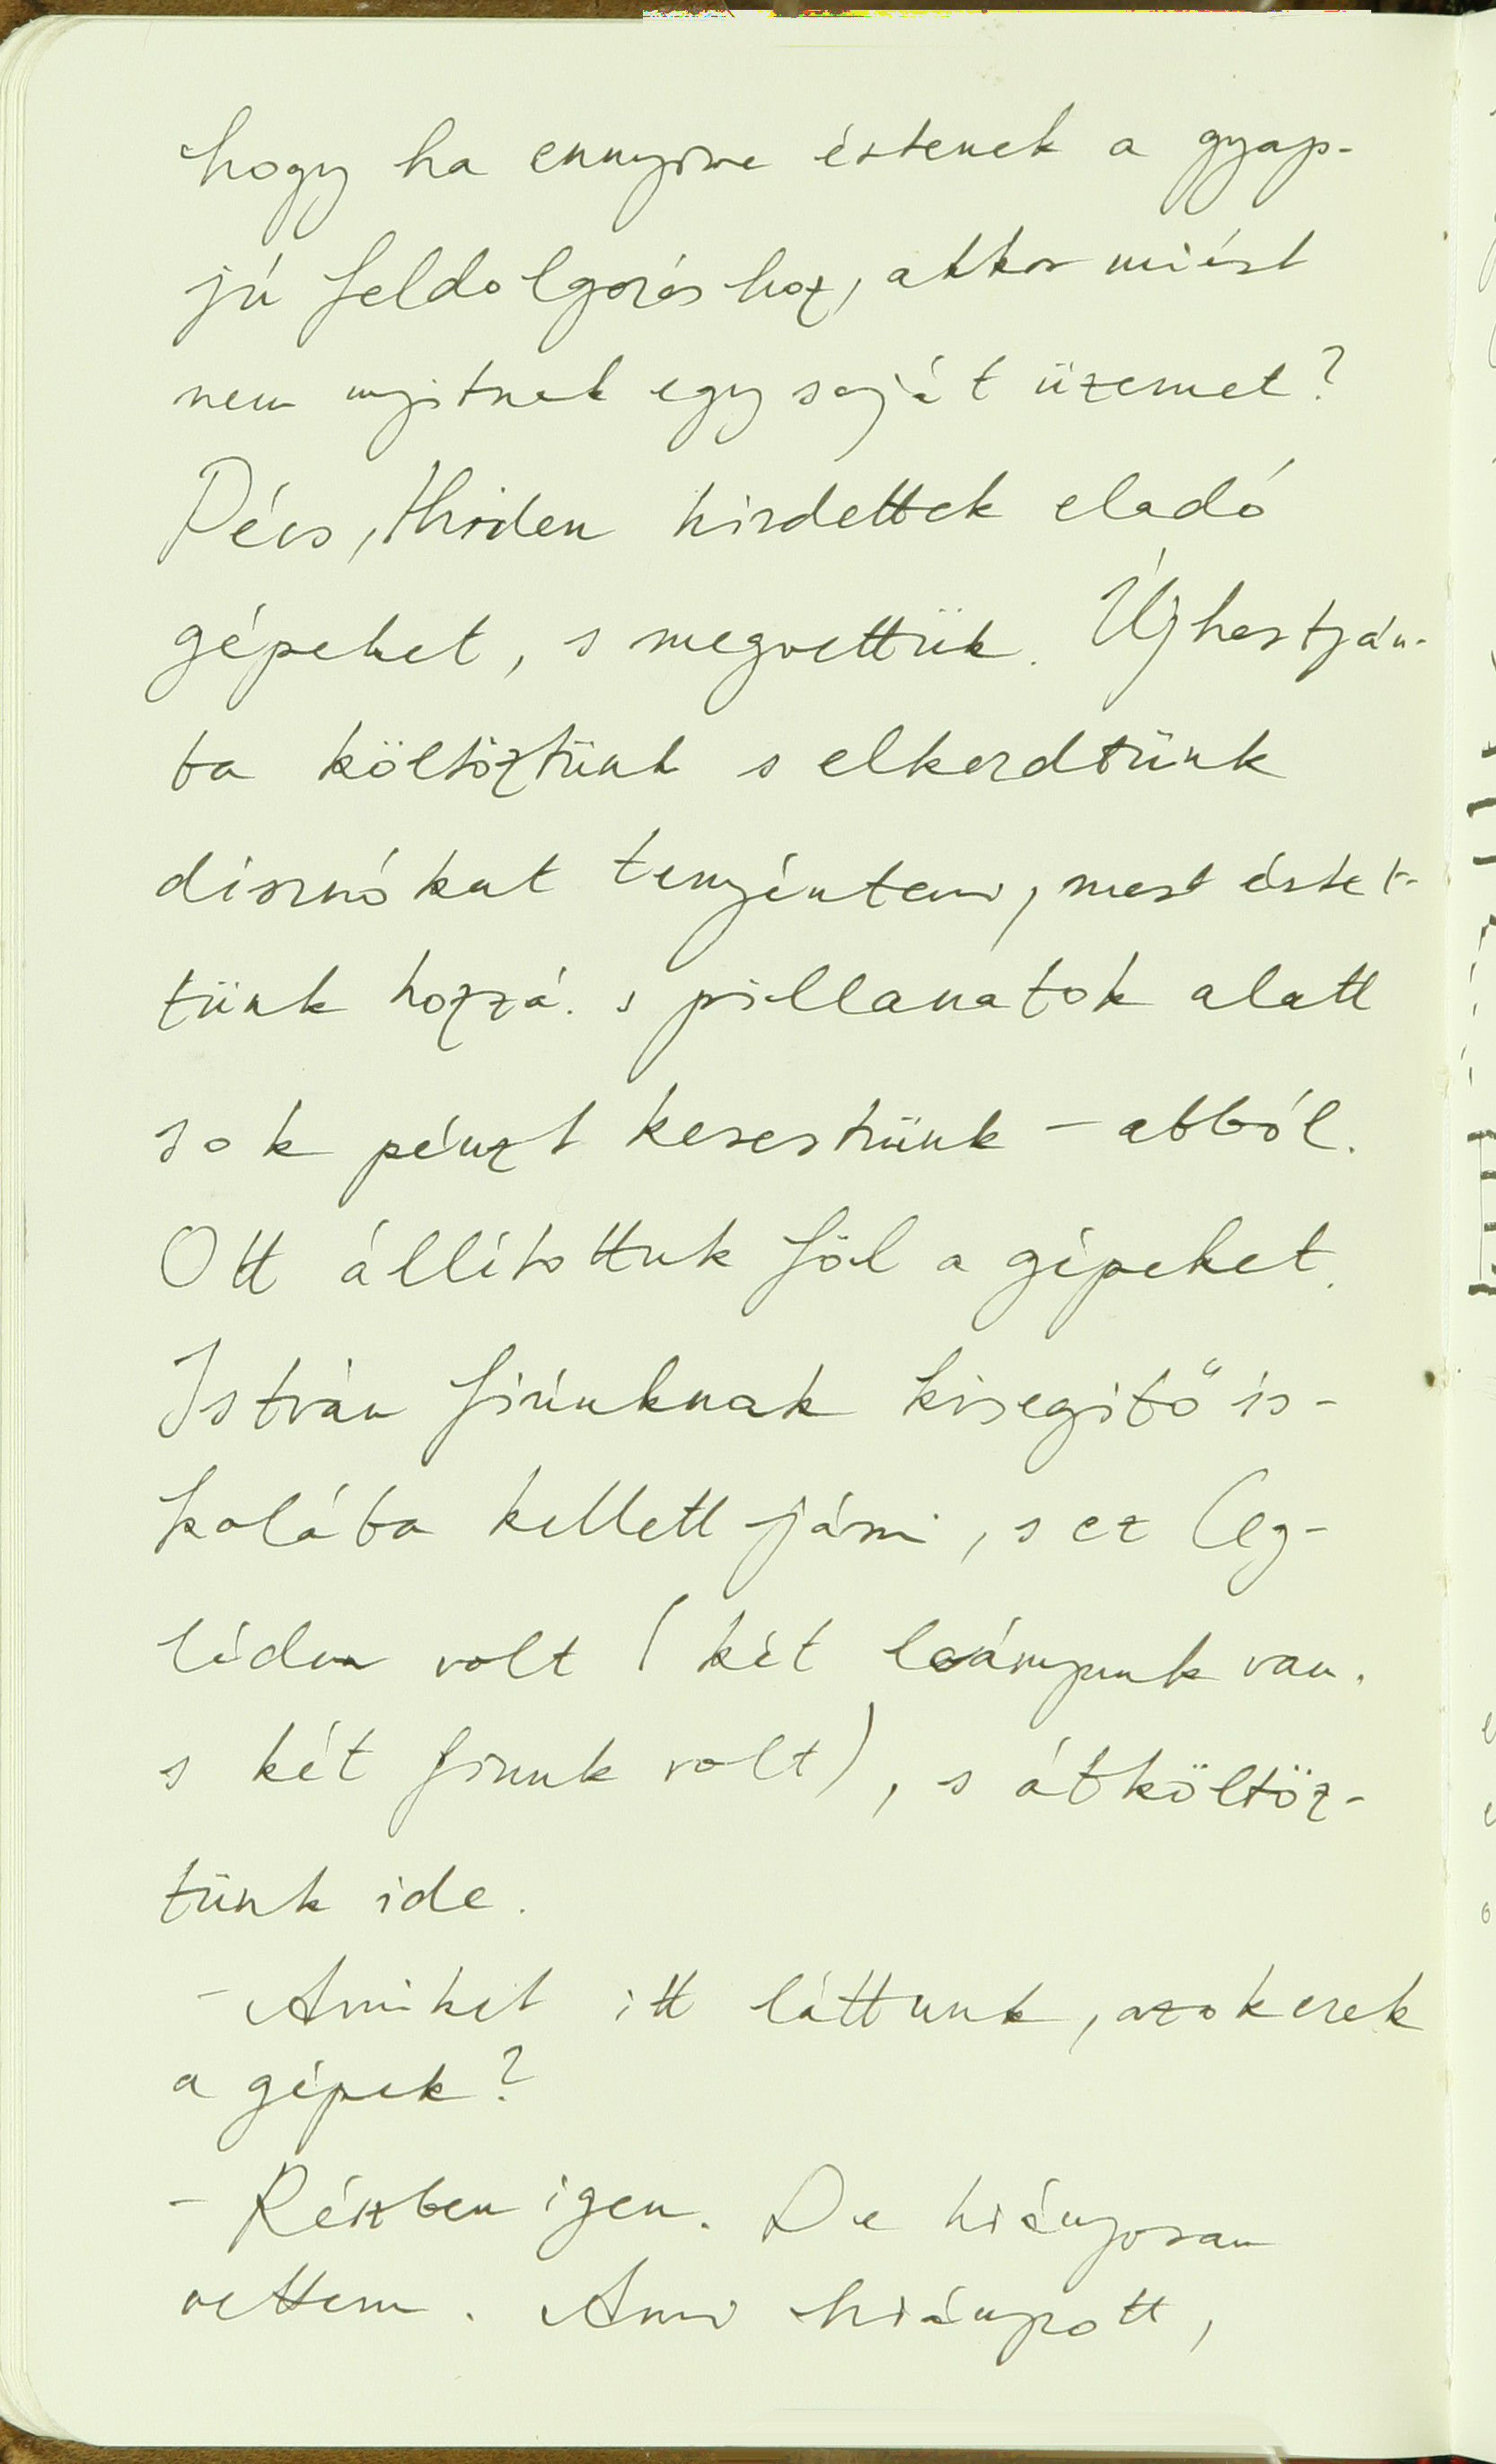 hogy ha ennyire értenek a gyap-
jú feldolgozáshoz, akkor miért
nem nyitnak egy saját üzemet?
Pécs, hirdettek eladó
gépeket, s megvettük. Újhartyán-
ba költöztünk s elkezdtünk
disznókat tenyészteni, mert értet-
tünk hozzá. s pillanatok alatt
sok pénzt kerestünk – abból.
Ott állítottuk föl a gépeket.
István fiúnknak kisegítő is-
kolába kellett járni, s ez Ceg-
léden volt (két leányunk van.
s két fiunk volt), s átköltöz-
tünk ide.
– Amiket itt láttunk, azok ezek
a gépek?
– Részben igen. De hiányosan
vettem. Ami hiányzott,